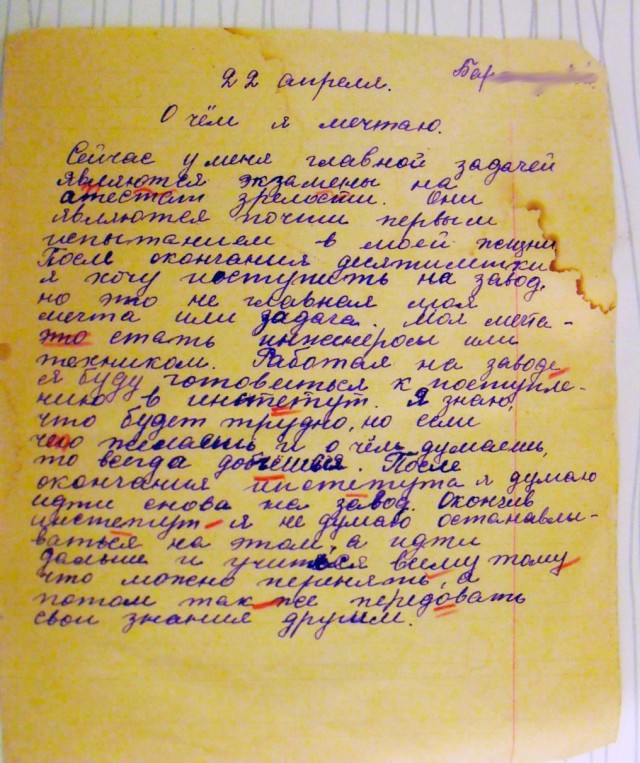 22 апреля. Бар
О чём я мечтаю.
Сейчас у меня главной задачей
являются экзамены на
атестат зрелости. Они
являются почти первым
испытанием в моей жизни
После окончания десятилетки
я хочу поступить на завод,
но это не главная моя
мечта или задача. Моя мечта-
это стать инженером или
техником. Работая на заводе
я буду готовиться к поступле-
нию в инстетут. Я знаю,
что будет трудно, но если
чего желаешь и о чём думаешь,
то всегда добьёшься. После
окончания инстетута я думаю
идти снова на завод. Окончив
инстетут - я не думаю останавли-
ваться на этом, а идти
дальше и учиться всему тому
что можно перенять, а
потом так же передовать
свои знания другим.